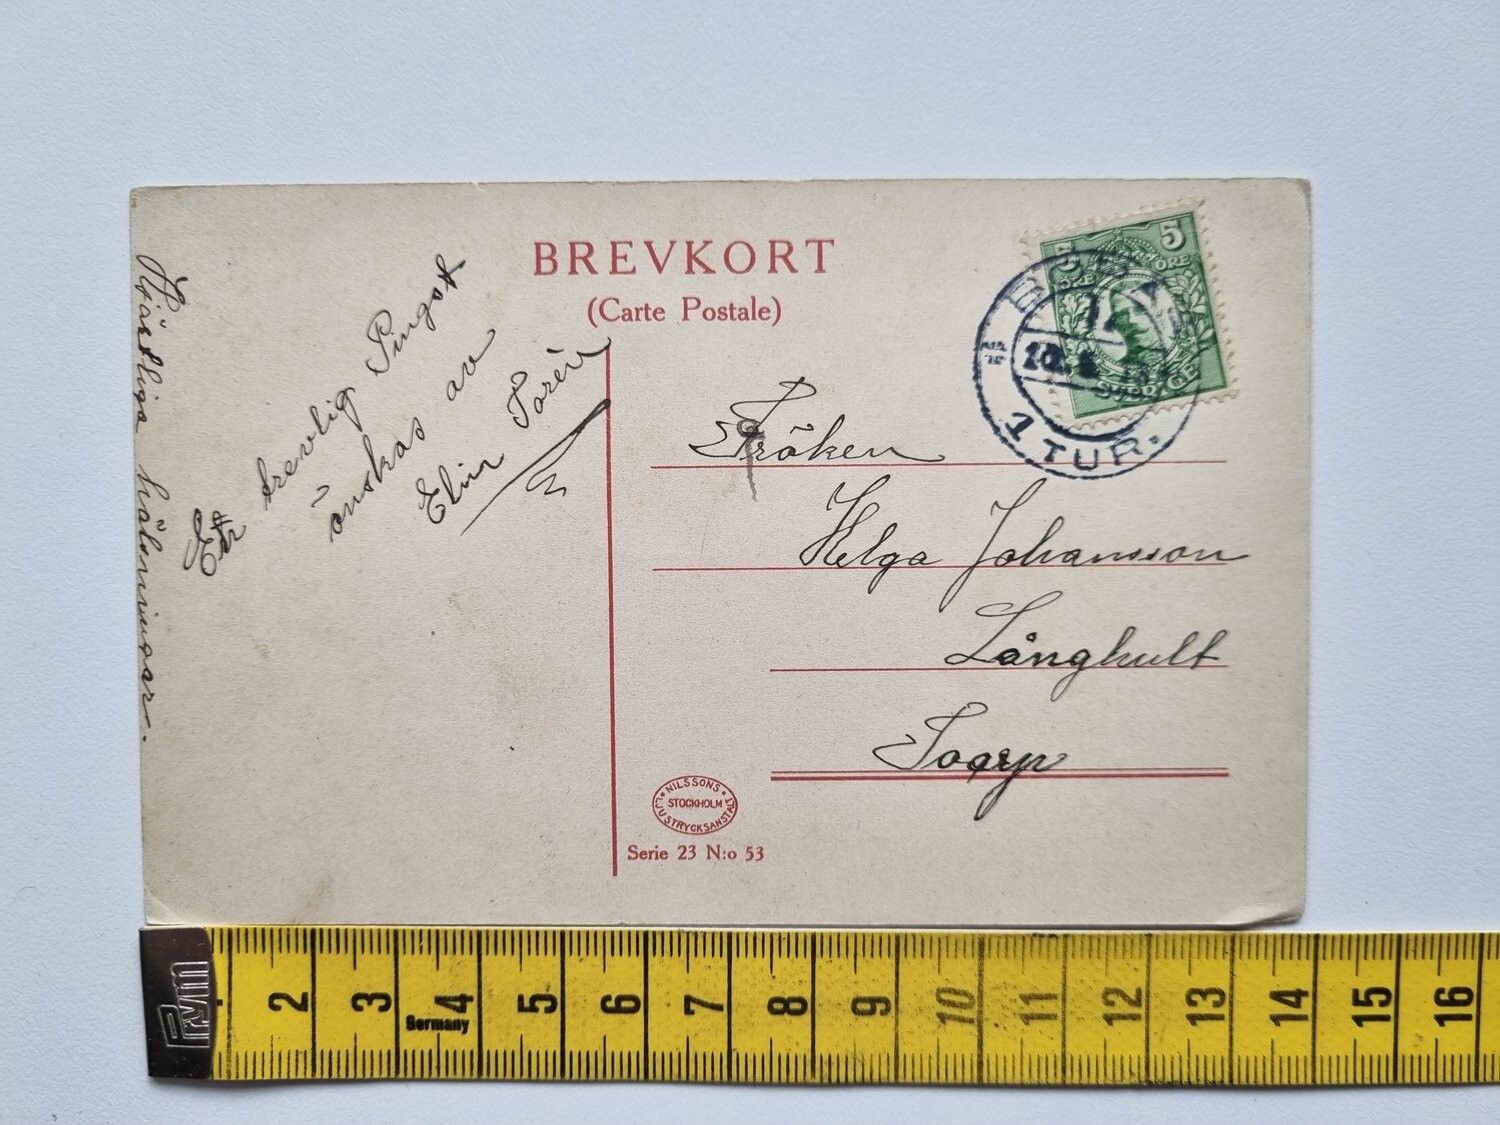 BREVKORT
(Carte Postale)
5 5
ÖRE ÖRE
SVERIGE
1 TUR.
Hjärtliga hälsningar.
Ett trevlig Pingst
önskas av
Elin Torén
Fröken
Helga Johansson
Långhult
Toarp
NILSSONS
STOCKHOLM
LJUSTRYCKSANSTALT
Serie 23 N:o 53
Prym
2 3 4 5 6 7 8 9 10 11 12 13 14 15 16
Germany